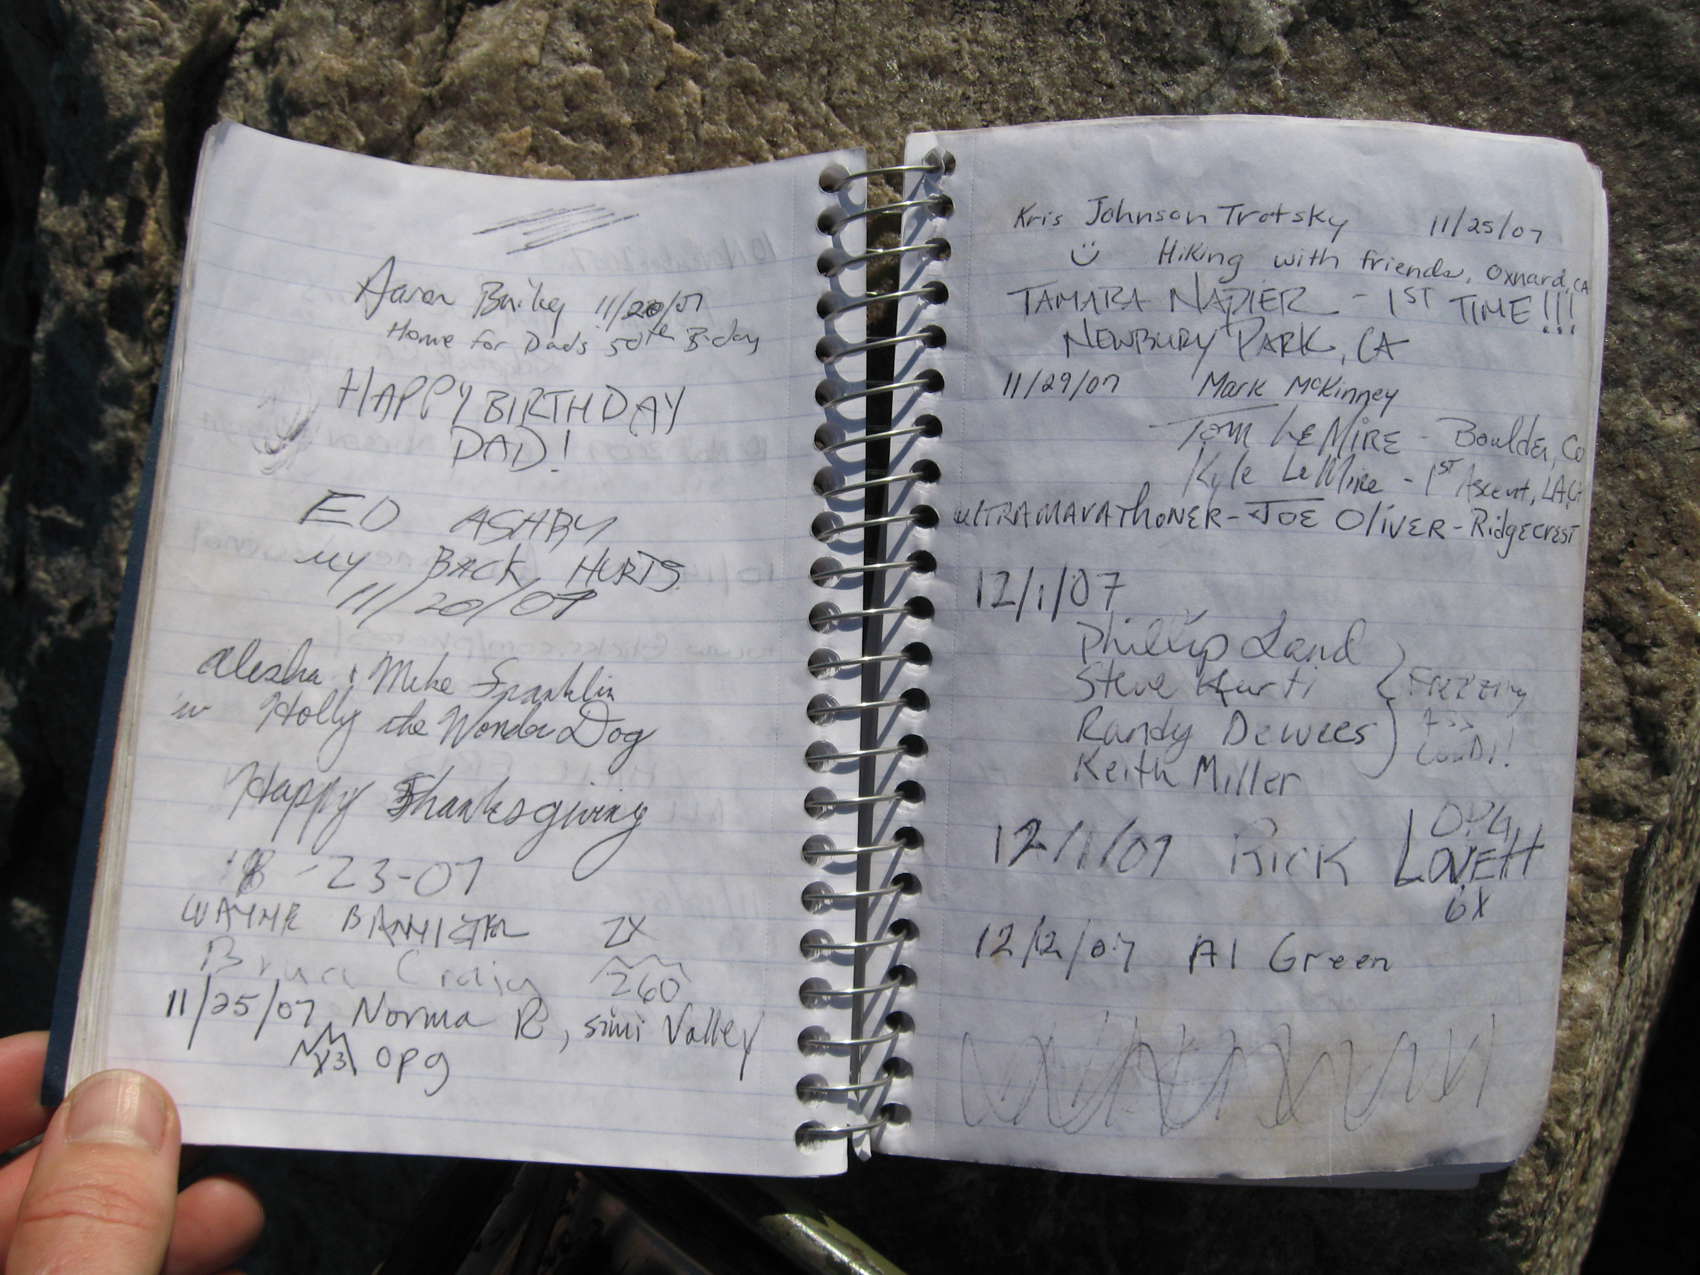 Aaron Bailey 11/20/07
Home for Dads 50th B-day
HAPPY BIRTHDAY
DAD!
ED ASHBY
MY BACK HURTS
11/20/07
Alesha & Mike Franklin
w Holly the Wonder Dog
Happy Thanksgiving
-23-07
WAYNE 2X
Bruce Craig 260
11/25/07 Norma R, Simi Valley
x3 opg
Kris Johnson Trotsky 11/25/07
Hiking with friends, Oxnard, CA
TAMARA NAPIER - 1ST TIME!!!
NEWBURY PARK, CA
11/29/07 Mark McKinney
TOM LEMIRE - Boulder, Co
Kyle LeMire - 1ST Ascent, LA, CA
ULTRAMARATHONER - JOE OLIVER - Ridgecrest
12/1/07
Phillip Land
Steve Kurti FREEZING
Randy Dewees Ass
Keith Miller COLD!
OPG
12/1/07 RICK LOVETT
6X
12/2/07 Al Green